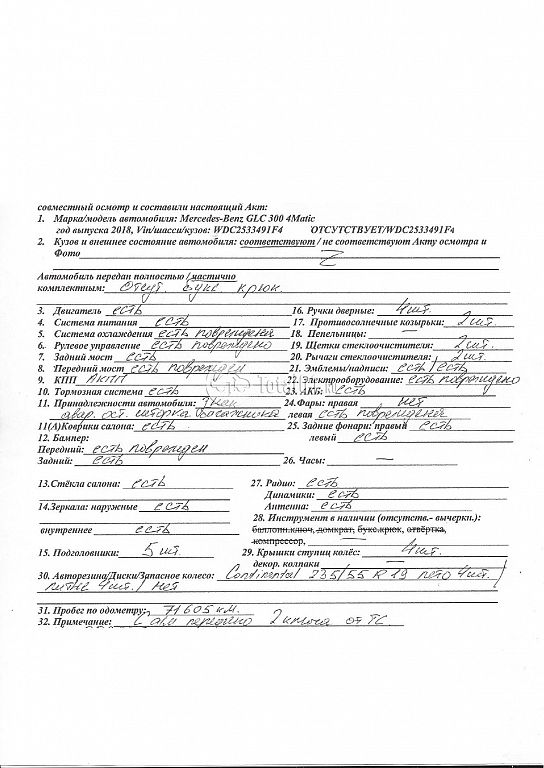 совместный осмотр и составили настоящий Акт:
1. Марка/модель автомобиля: Mercedes-Benz GLC 300 4Matic
год выпуска 2018, Vin/шасси/кузов: WDC2533491F4 ОТСУТСТВУЕТ/WDC2533491F4
2. Кузов и внешнее состояние автомобиля: соответствуют / не соответствуют Акту осмотра и
Фото
Автомобиль передан полностью / частично
комплектным: Отсут. букс. крюк.
3. Двигатель есть 16. Ручки дверные: 4 шт.
4. Система питания есть 17. Противосолнечные козырьки: 2 шт.
5. Система охлаждения есть повреждена 18. Пепельницы: —
6. Рулевое управление есть повреждено 19. Щетки стеклоочистителя: 2 шт.
7. Задний мост есть 20. Рычаги стеклоочистителя: 2 шт.
8. Передний мост есть поврежден 21. Эмблемы/надписи: есть / есть
9. КПП АКПП 22. Электрооборудование: есть повреждено
10. Тормозная система есть 23. АКБ: есть
11. Принадлежности автомобиля: Знак 24. Фары: правая нет
авар. ост. шторка багажника левая есть повреждена
11(А) Коврики салона: есть 25. Задние фонари: правый есть
12. Бампер: левый есть
Передний: есть поврежден
Задний: есть 26. Часы: —
13. Стёкла салона: есть 27. Радио: есть
Динамики: есть
14. Зеркала: наружные есть Антенна: есть
28. Инструмент в наличии (отсутств.- вычеркн.):
внутреннее есть баллонн.ключ, домкрат, букс.крюк, отвёртка,
компрессор,
15. Подголовники: 5 шт. 29. Крышки ступиц колёс: 4 шт.
декор. колпаки —
30. Авторезина/Диски/Запасное колесо: Continental 235/55 R 19 лето 4 шт. /
литые 4 шт. / нет
31. Пробег по одометру: 71605 км.
32. Примечание: С а/м передано 2 ключа от ТС.